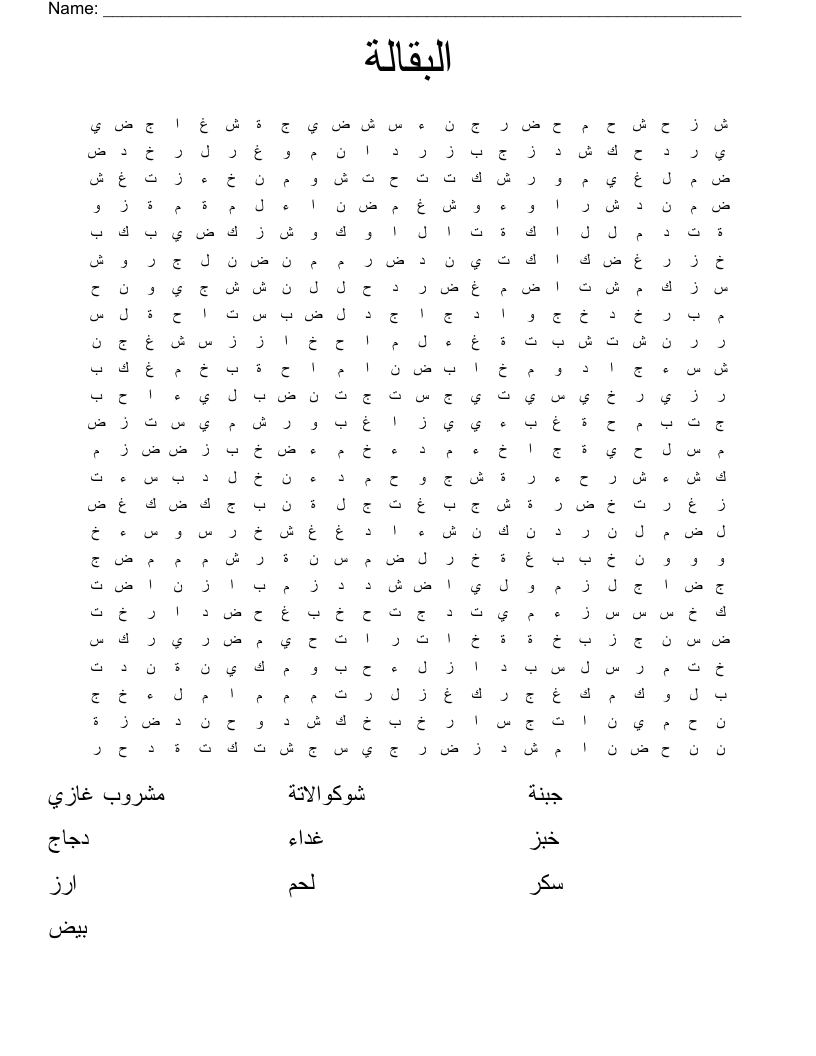 Name: ______________________________
البقالة
ش ز ح ش ح م ح ض ر ج ن ء س ش ض ي ج ة ش غ ا ج ض ي
ي ر د ح ك ش د ز ج ب ز ر د ا ن م و غ ر ل ر خ د ض
ض م ل غ ي م و ر ش ك ت ت ح ت ش و م ن خ ء ز ت غ ش
ض م ن د ش ر ا و ء و ش غ م ض ن ا ء ل م ة م ة ز و
ة ت د م ل ل ا ك ة ت ا ل ا و ك و ش ز ك ض ي ب ك ب
خ ز ر غ ض ك ا ك ت ي ن د ض ر م م ن ض ن ل ج ر و ش
س ز ك م ش ت ا ض م غ ض ر د ح ل ل ن ش ش ج ي و ن ح
م ب ر خ د خ ج و ا د ج ا ج د ل ض ب س ت ا ح ة ل س
ر ر ن ش ت ش ب ت ة غ ء ل م ا ح خ ا ز ز س ش غ ج ن
ش س ء ج ا د و م خ ا ب ض ن ا م ا ح ة ب خ م غ ك ب
ر ز ي ر خ ي س ي ت ي ج س ت ج ت ن ض ب ل ي ء ا ح ب
ج ت ب م ح ة غ ب ء ي ي ز ا غ ب و ر ش م ي س ت ز ض
م س ل ح ي ة ج ا خ ء م د ء خ م ء ض خ ب ز ض ض ز م
ك ش ء ش ر ح ء ر ة ش ج و ح م د ء ن خ ل د ب س ء ت
ز غ ر ت خ ض ر ة ش ج ب غ ت ج ل ة ن ب ج ك ض ك غ ض
ل ض م ل ن ر د ن ك ن ش ء ا د غ غ ش خ ر س و س ء خ
و و و ن خ ب ب غ ة خ ر ل ض م س ن ة ر ش م م م ض ج
ج ض ا ج ل ز م و ل ي ا ض ش د د ز م ب ا ز ن ا ض ت
ك خ س س س ز ء م ي ت د ج ت ح خ ب غ ح ض د ا ر خ ت
ض س ن ج ز ب خ ة ة خ ا ت ر ا ت ح ي م ض ر ي ر ك س
خ ت م ر س ل س ب د ا ز ل ء ح ب و م ك ي ن ة ن د ت
ب ل و ك م ك غ ج ر ك غ ز ل ر ت م م م ا م ل ء خ ج
ن ح م ي ن ا ت ج س ا ر خ ب خ ك ش د و ح ن د ض ز ة
ن ن ح ض ن ا م ش د ز ض ر ج ي س ج ش ت ك ت ة د ح ر
جبنة شوكوالاتة مشروب غازي
خبز غداء دجاج
سكر لحم ارز
بيض